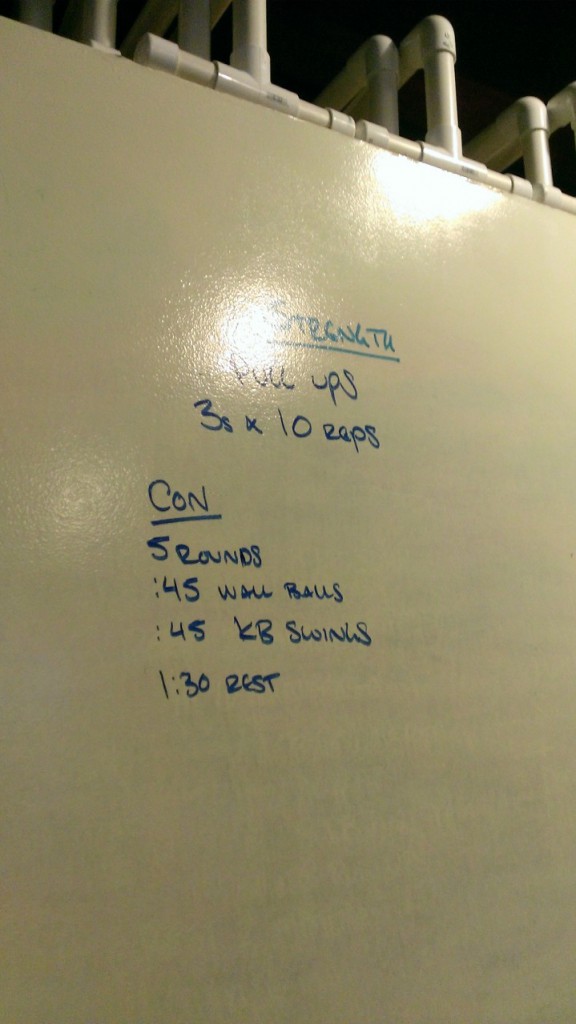 STRENGTH
PULL UPS
3s x 10 REPS
CON
5 ROUNDS
:45 WALL BALLS
:45 KB SWINGS
1:30 REST